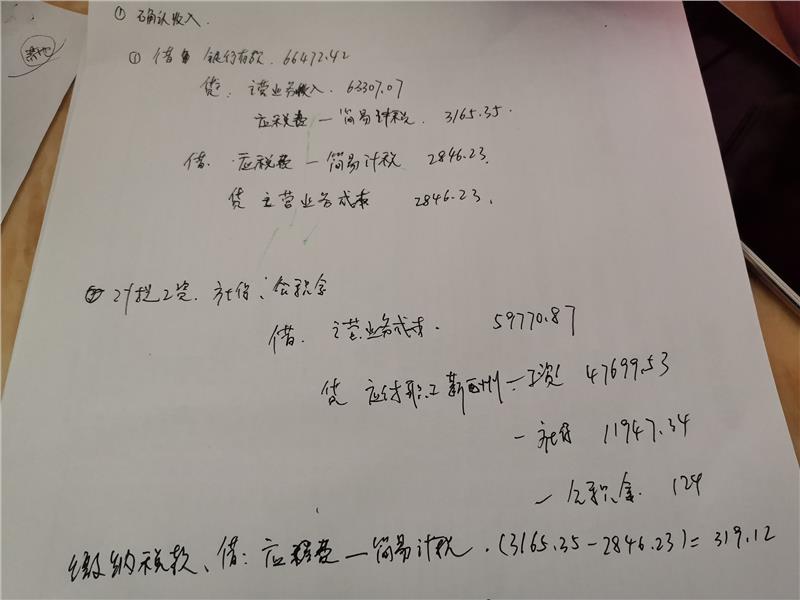 ① 确认收入.
① 借 银行存款. 66472.42
贷: 主营业务收入. 63307.07
应税费 — 简易计税. 3165.35.
借. 应税费 — 简易计税 2846.23.
贷 主营业务成本 2846.23.
② 计提工资. 社保、公积金
借. 主营业务成本. 59770.87
贷 应付职工薪酬 — 工资 47699.53
— 社保 11947.34
— 公积金. 124
缴纳税款、借: 应税费 — 简易计税. (3165.35-2846.23)=319.12